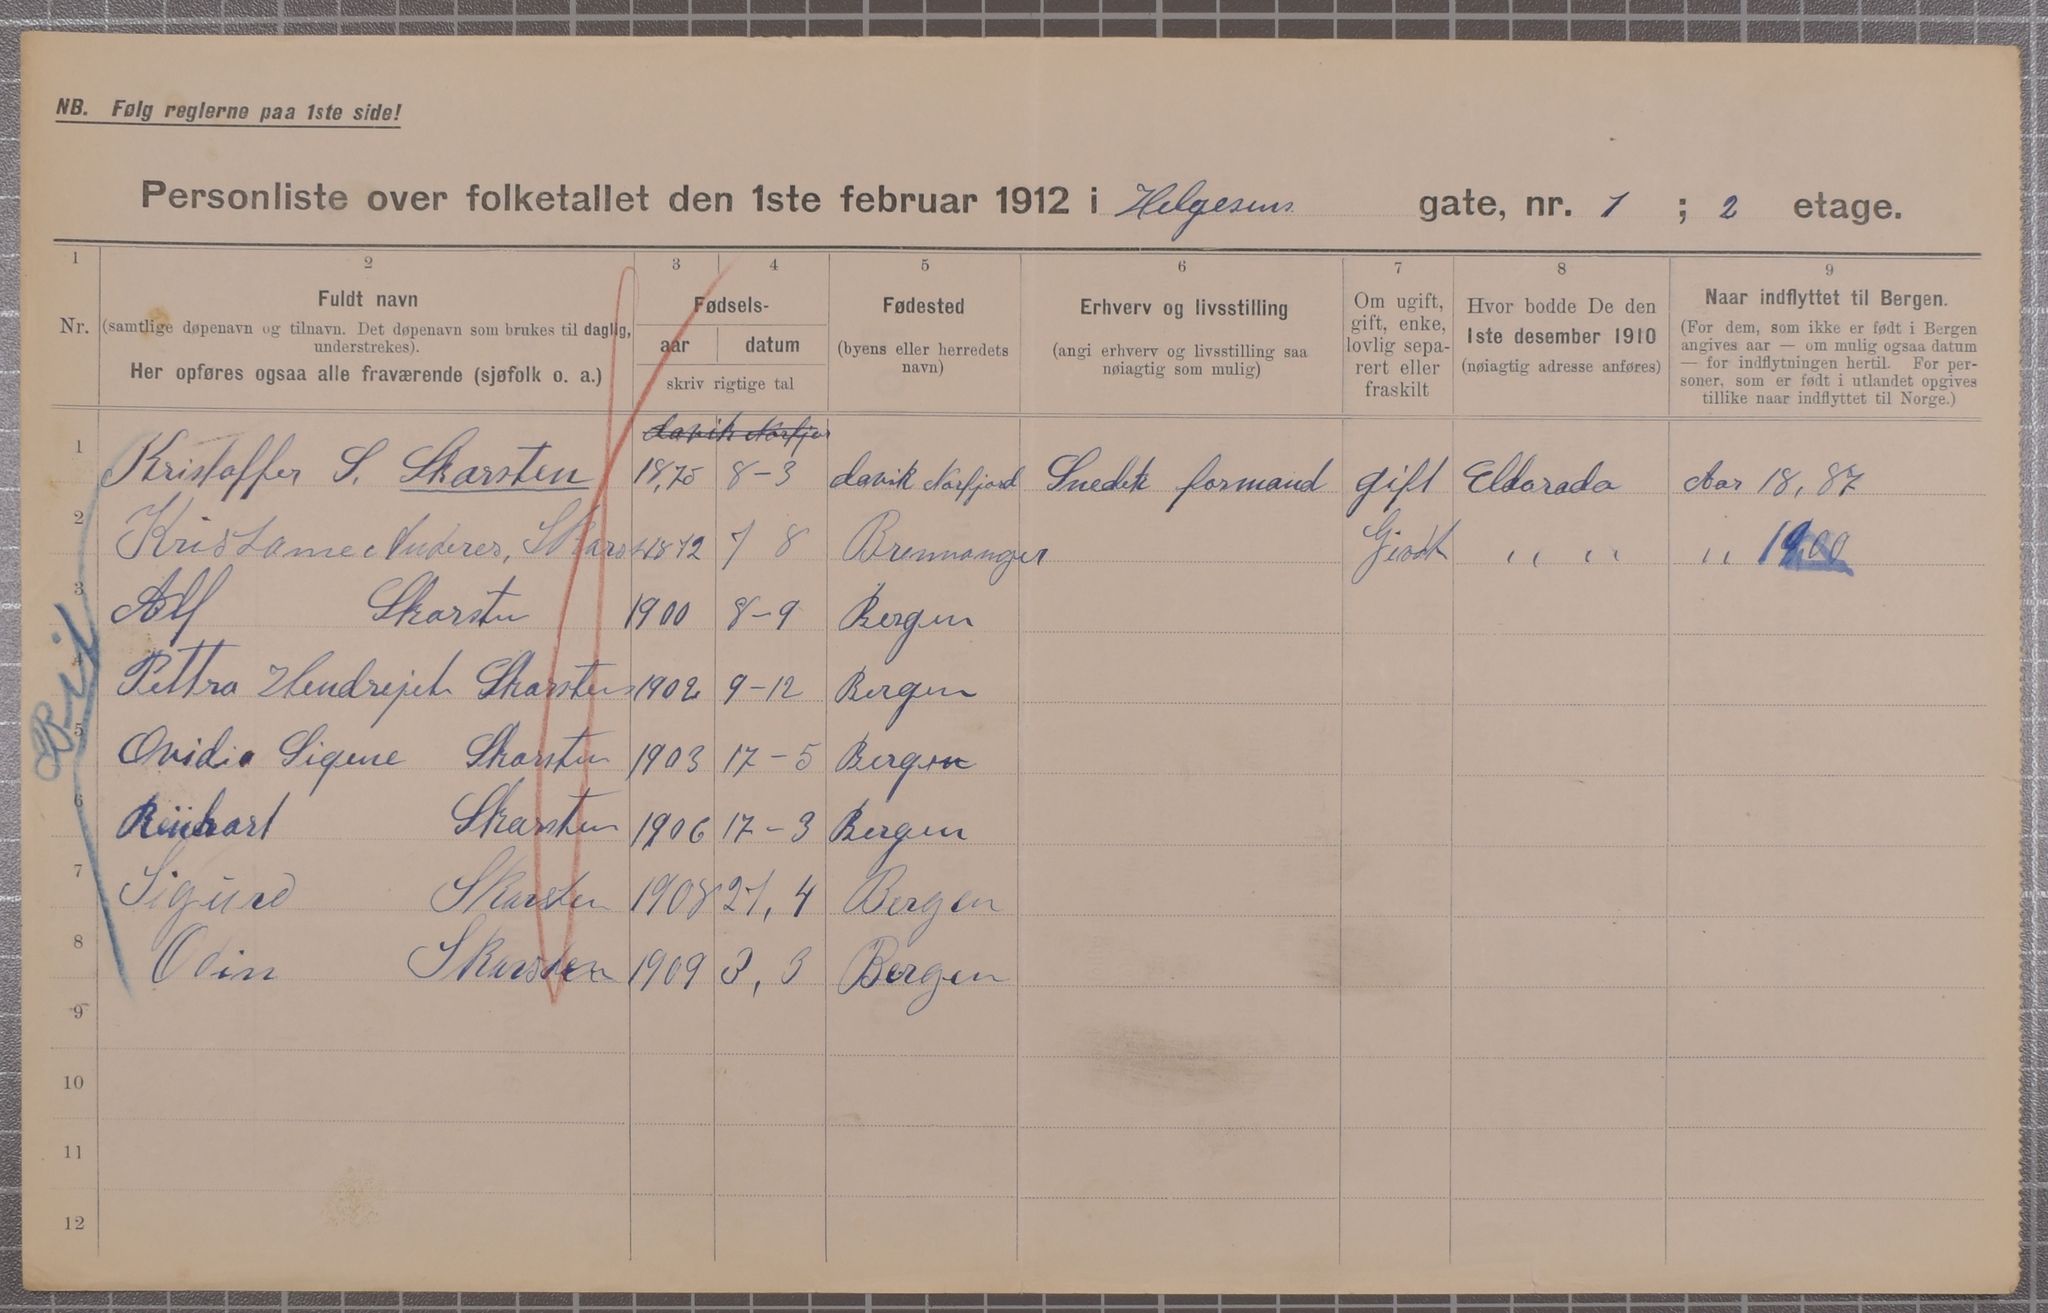 NB. Følg reglerne paa 1ste side!
Personliste over folketallet den 1ste februar 1912 i Helgesens gate, nr. 1 ; 2 etage.
1 2 3 4 5 6 7 8 9
Nr.
Fuldt navn
(samtlige døpenavn og tilnavn. Det døpenavn som brukes til daglig, understrekes).
Her opføres ogsaa alle fraværende (sjøfolk o. a.)
Fødsels-
aar datum
skriv rigtige tal
Fødested
(byens eller herredets
navn)
Erhverv og livsstilling
(angi erhverv og livsstilling saa
nøiagtig som mulig)
Om ugift,
gift, enke,
lovlig sepa-
rert eller
fraskilt
Hvor bodde De den
1ste desember 1910
(nøiagtig adresse anføres)
Naar indflyttet til Bergen.
(For dem, som ikke er født i Bergen
angives aar — om mulig ogsaa datum
— for indflytningen hertil. For per-
soner, som er født i utlandet opgives
tillike naar indflyttet til Norge.)
davik Norfjor
1 Kristoffer S. Skarsten 18,75 8-3 davik Norfjord Snedk formand gift Eldorado Aar 18,87
2 1872 7 8 Bremanger Givdt ,, ,, ,, 19,00
3 Alf Skarsten 1900 8-9 Bergen
4 Pettra Hendrejet Skarsten 1902 9-12 Bergen
5 Ovidia Signe Skarsten 1903 17-5 Bergen
6 Reinhart Skarsten 1906 17-3 Bergen
7 Sigurd Skarsten 1908 27,4 Bergen
8 Odin Skarsten 1909 3,3 Bergen
9
10
11
12